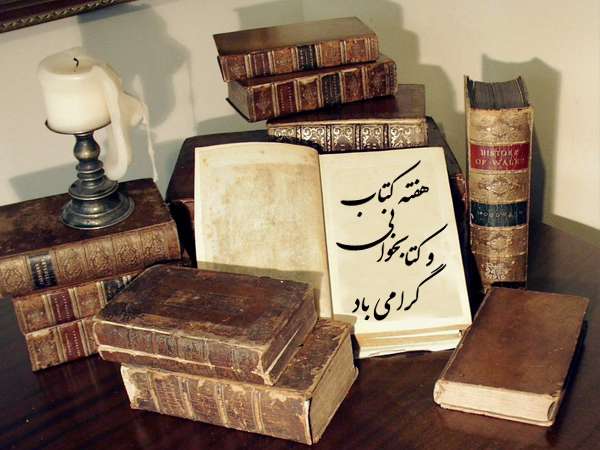 هفته کتاب
و کتابخوانی
گرامی باد
HISTORY
OF WALES
WOODWARD